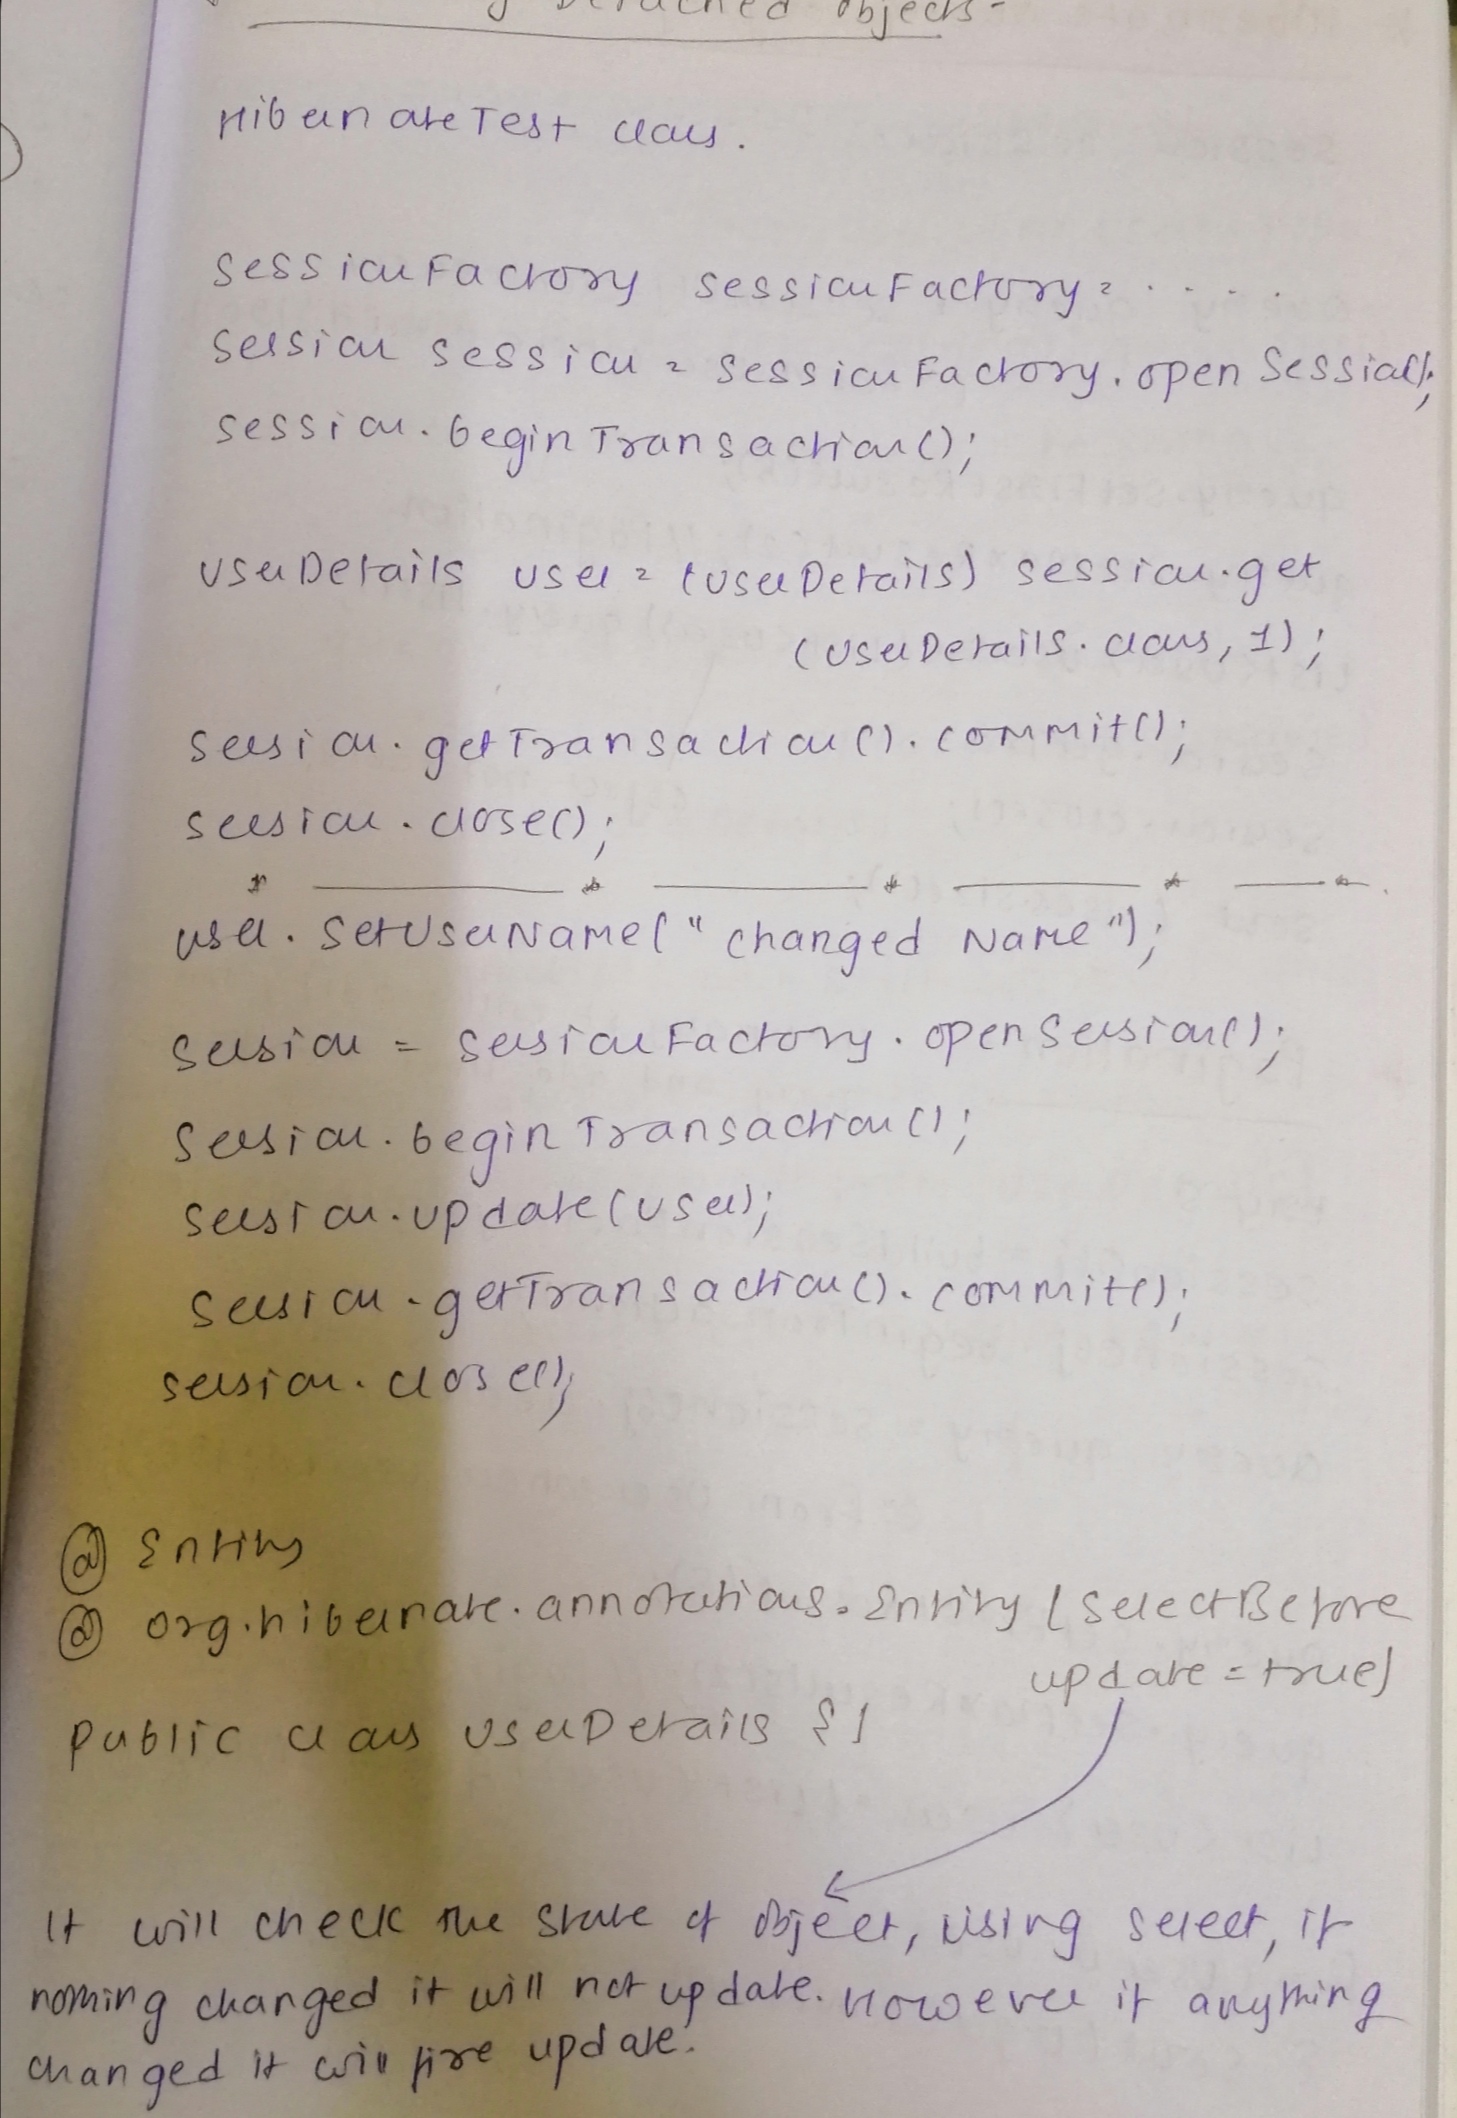 Detached Objects-
HibernateTest class.
SessionFactory sessionFactory = . . . .
Session session = sessionFactory.openSession();
session.beginTransaction();
UserDetails user = (UserDetails) session.get
(UserDetails.class, 1);
session.getTransaction().commit();
session.close();
user.setUserName("changed Name");
session = sessionFactory.openSession();
session.beginTransaction();
session.update(user);
session.getTransaction().commit();
session.close();
@ Entity
@ org.hibernate.annotations.Entity (SelectBefore
update = true)
public class UserDetails { }
It will check the state of object, using select, if
nothing changed it will not update. However if anything
changed it will fire update.